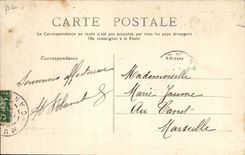 CARTE POSTALE
La Correspondance au recto n'est pas acceptée par tous les pays étrangers
(Se renseigner à la Poste)
Correspondance
Adresse
Souvenir affectueux
Mademoiselle
Marie
Au Canet
Marseille